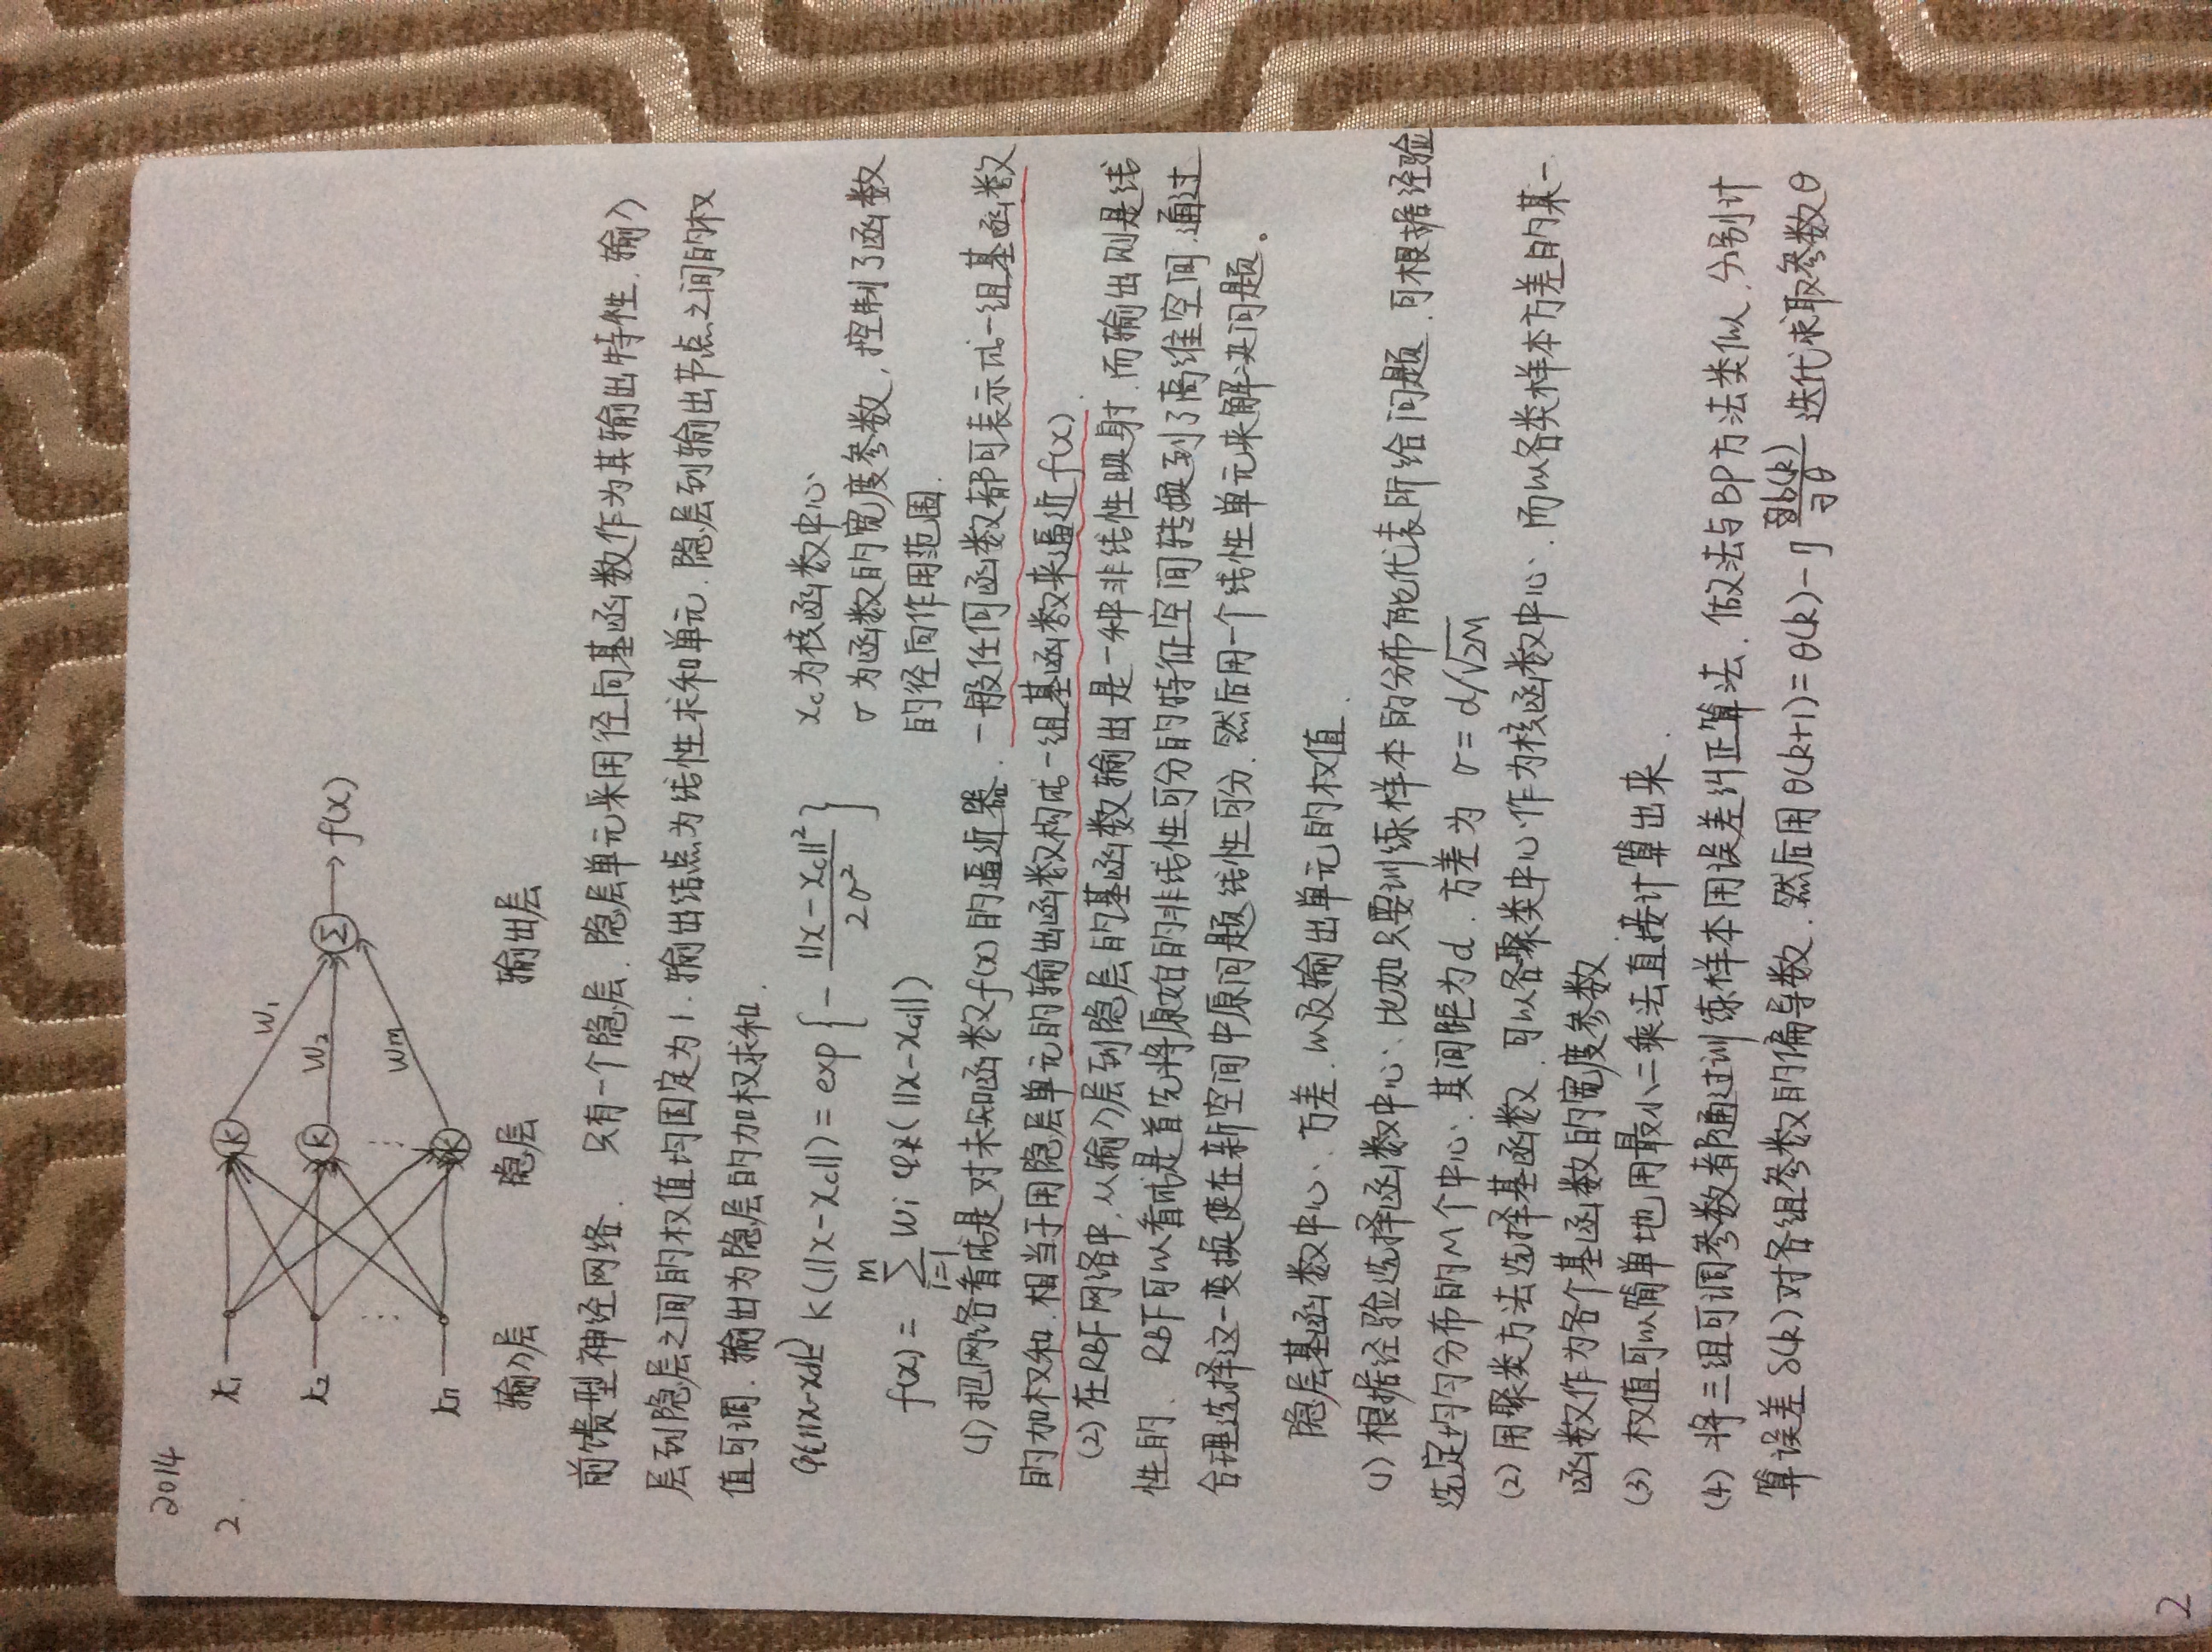 2014
2.
x₁
x₂
xₙ
k
k
k
w₁
w₂
wm
Σ → f(x)
输入层 隐层 输出层
前馈型神经网络. 只有一个隐层. 隐层单元采用径向基函数作为其输出特性. 输入
层到隐层之间的权值均固定为1. 输出结点为线性求和单元. 隐层到输出节点之间的权
值可调. 输出为隐层的加权求和.
k(||x-xc||) = exp{ - ||x-xc||² / 2σ² } xc为核函数中心
σ为函数的宽度参数, 控制了函数
的径向作用范围.
f(x) = Σ(i=1, m) wi φ(||x-xci||)
(1) 把网络看成是对未知函数f(x)的逼近器. 一般任何函数都可表示成一组基函数
的加权和. 相当于用隐层单元的输出函数构成一组基函数来逼近f(x).
(2) 在RBF网络中, 从输入层到隐层的基函数输出是一种非线性映射. 而输出则是线
性的. RBF可以看成是首先将原始的非线性可分的特征空间转换到了高维空间. 通过
合理选择这一变换使在新空间中原问题线性可分. 然后用一个线性单元来解决问题。
隐层基函数中心、方差. 以及输出单元的权值.
(1) 根据经验选择函数中心: 比如只要训练样本的分布能代表所给问题. 可根据经验
选定均匀分布的M个中心. 其间距为d. 方差为 σ = d/√2M
(2) 用聚类方法选择基函数. 可以各聚类中心作为核函数中心. 而以各类样本方差的某一
函数作为各个基函数的宽度参数
(3) 权值可以简单地用最小二乘法直接计算出来.
(4) 将三组可调参数都通过训练样本用误差纠正算法. 做法与BP方法类似, 分别计
算误差δ(k)对各组参数的偏导数. 然后用 θ(k+1) = θ(k) - η ∂δ(k)/∂θ 迭代求取参数θ
2